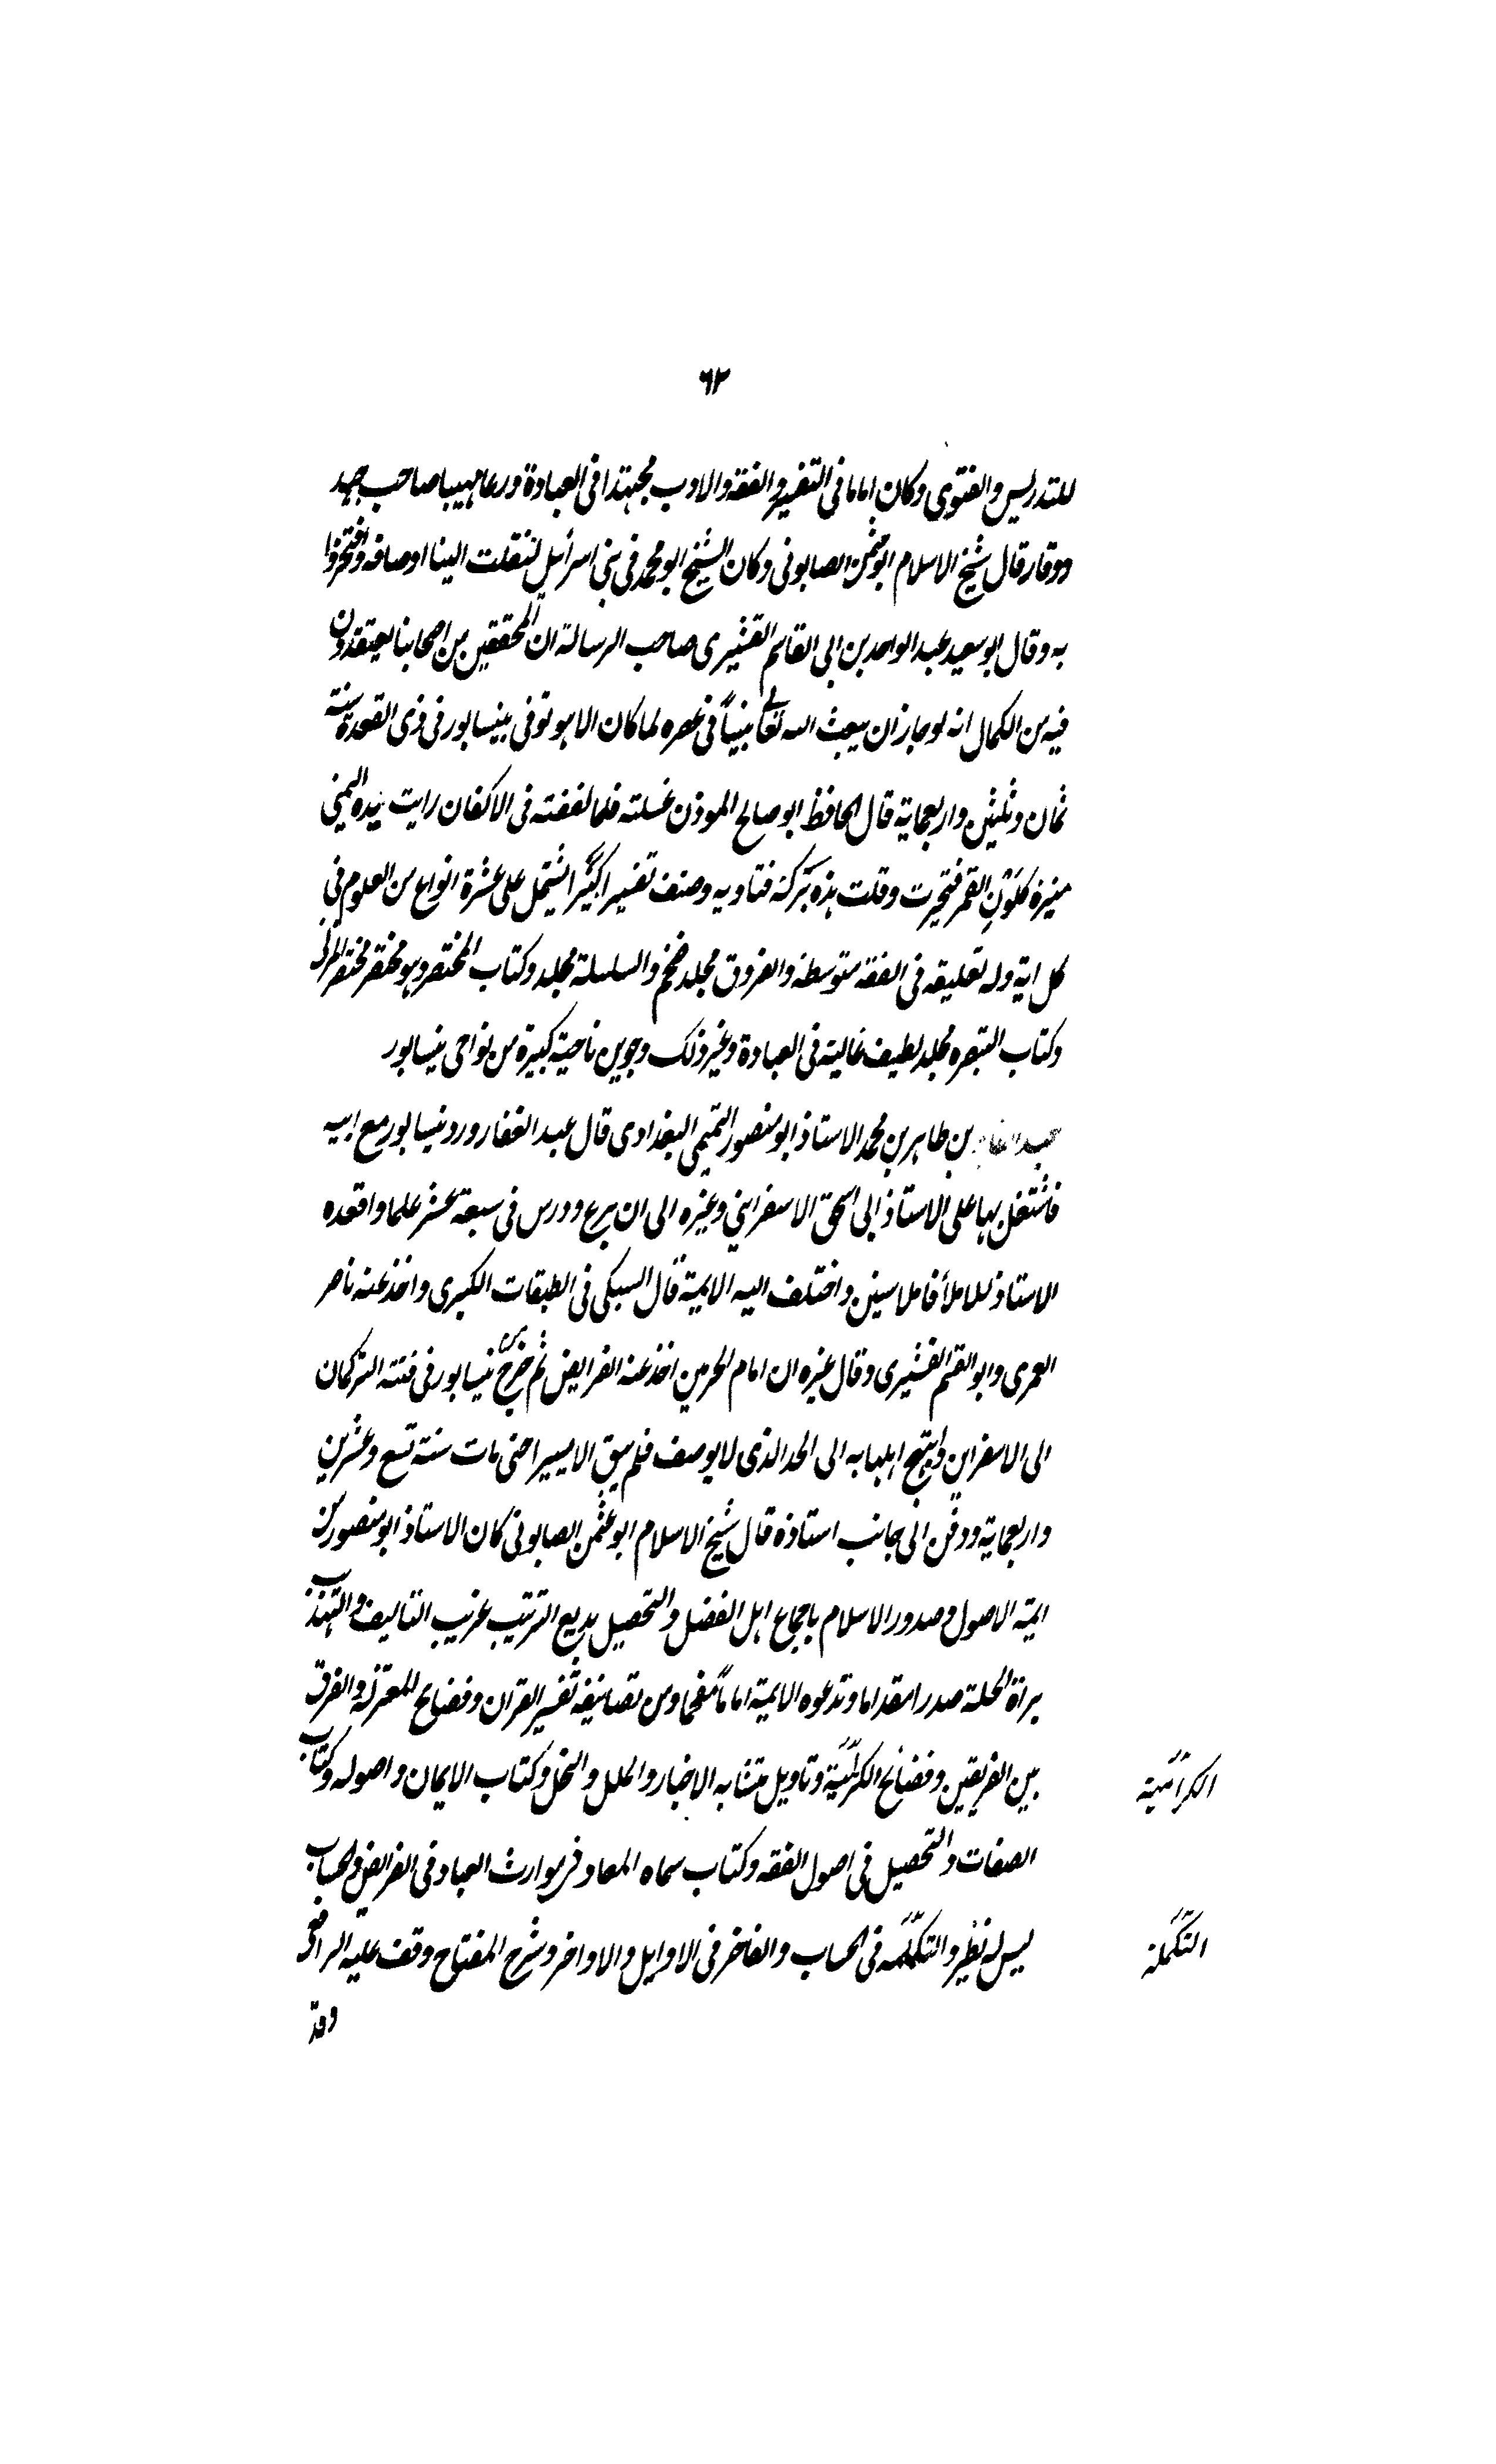 ٦٢
للتدريس والفتوى وكان اماما فى التفسير والفقه والادب مجتهدا فى العبادة ورعا مهيبا صاحب جد
ووقار قال شيخ الاسلام ابو عثمن الصابونى وكان الشيخ ابو محمد فى بنى اسرائيل لنقلت الينا اوصافه وافتخروا
به وقال ابو سعيد عبد الواحد بن ابى القاسم القشيرى صاحب الرسالة ان المحققين من اصحابنا يعتقدون
فيه من الكمال انه لو جاز ان يبعث الله تعالى نبيا فى عصره لما كان الا هو توفى بنيسابور فى ذى القعدة سنة
ثمان وثلثين واربعماية قال الحافظ ابو صالح الموذن غسلته فلما لففته فى الاكفان رايت يده اليمنى
منيرة كلون القمر فتحيرت وقلت هذه بركة فتاويه وصنف تفسيرا كبيرا يشتمل على عشرة انواع من العلوم فى
كل اية وله تعليقه فى الفقه متوسطة والفروق مجلد ضخم والسلسلة مجلد وكتاب المختصر وهو مختصر مختصر المزنى
وكتاب التبصره مجلد لطيف غالبه فى العبادة وغير ذلك وجوين ناحية كبيرة من نواحى نيسابور
عبد القاهر بن طاهر بن محمد الاستاذ ابو منصور التميمى البغدادى قال عبد الغفار ورد نيسابور مع ابيه
فاشتغل بها على الاستاذ ابى اسحق الاسفراينى وغيره الى ان برع ودرس فى سبعة عشر علما واقعده
الاستاذ للاملأ فاملا سنين واختلف اليه الايمة قال السبكى فى الطبقات الكبرى واخذ عنه ناصر
العمرى وابو القسم القشيرى وقال غيره ان امام الحرمين اخذ عنه الفرايض ثم خرج من نيسابور فى فتنة التركمان
الى الاسفراين وابتهج اهلها به الى الحد الذى لا يوصف فلم يبق الا يسيرا حتى مات سنة تسع وعشرين
واربعماية ودفن الى جانب استاذه قال شيخ الاسلام ابو عثمن الصابونى كان الاستاذ ابو منصور من
ايمة الاصول وصدور الاسلام باجماع اهل الفضل والتحصيل بديع الترتيب غريب التاليف والتهذيب
يراه الجلة صدرا مقداما وتدعوه الايمة اماما مفخما ومن تصانيفه تفسير القران وفضايح المعتزلة والفرق
بين الفريقين وفضائح الكرامية وتاويل متشابه الاخبار والملل والنحل وكتاب الايمان واصوله وكتاب
الكرامية
الصفات والتحصيل فى اصول الفقه وكتاب سماه المعاد فى مواريث العباد فى الفرايض والحساب
ليس له نظير والتكمله فى الحساب والفاخر فى الاوايل والاواخر وشرح المفتاح وقف عليه الرافعى
التكملة
وقد